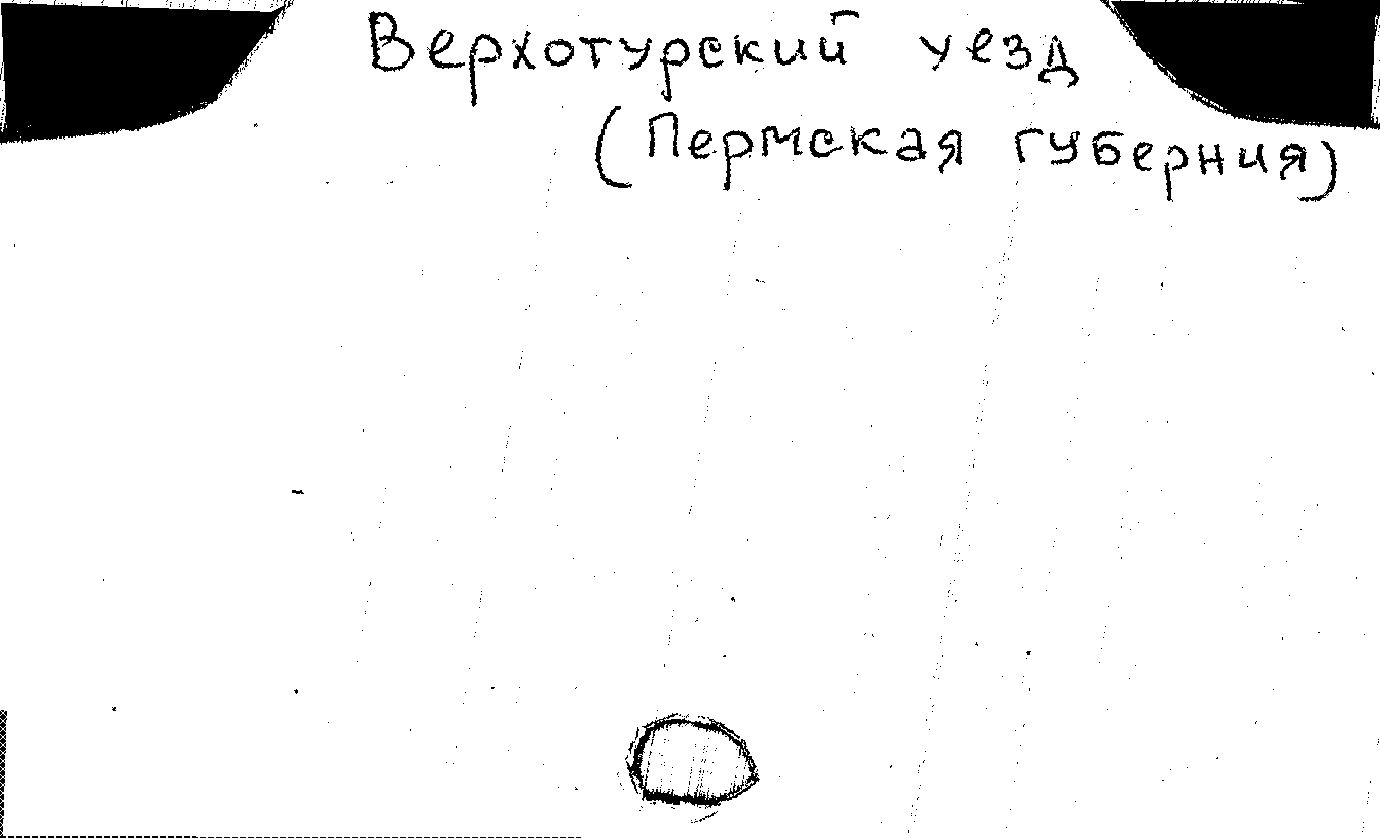 Верхотурский уезд
(Пермская губерния)